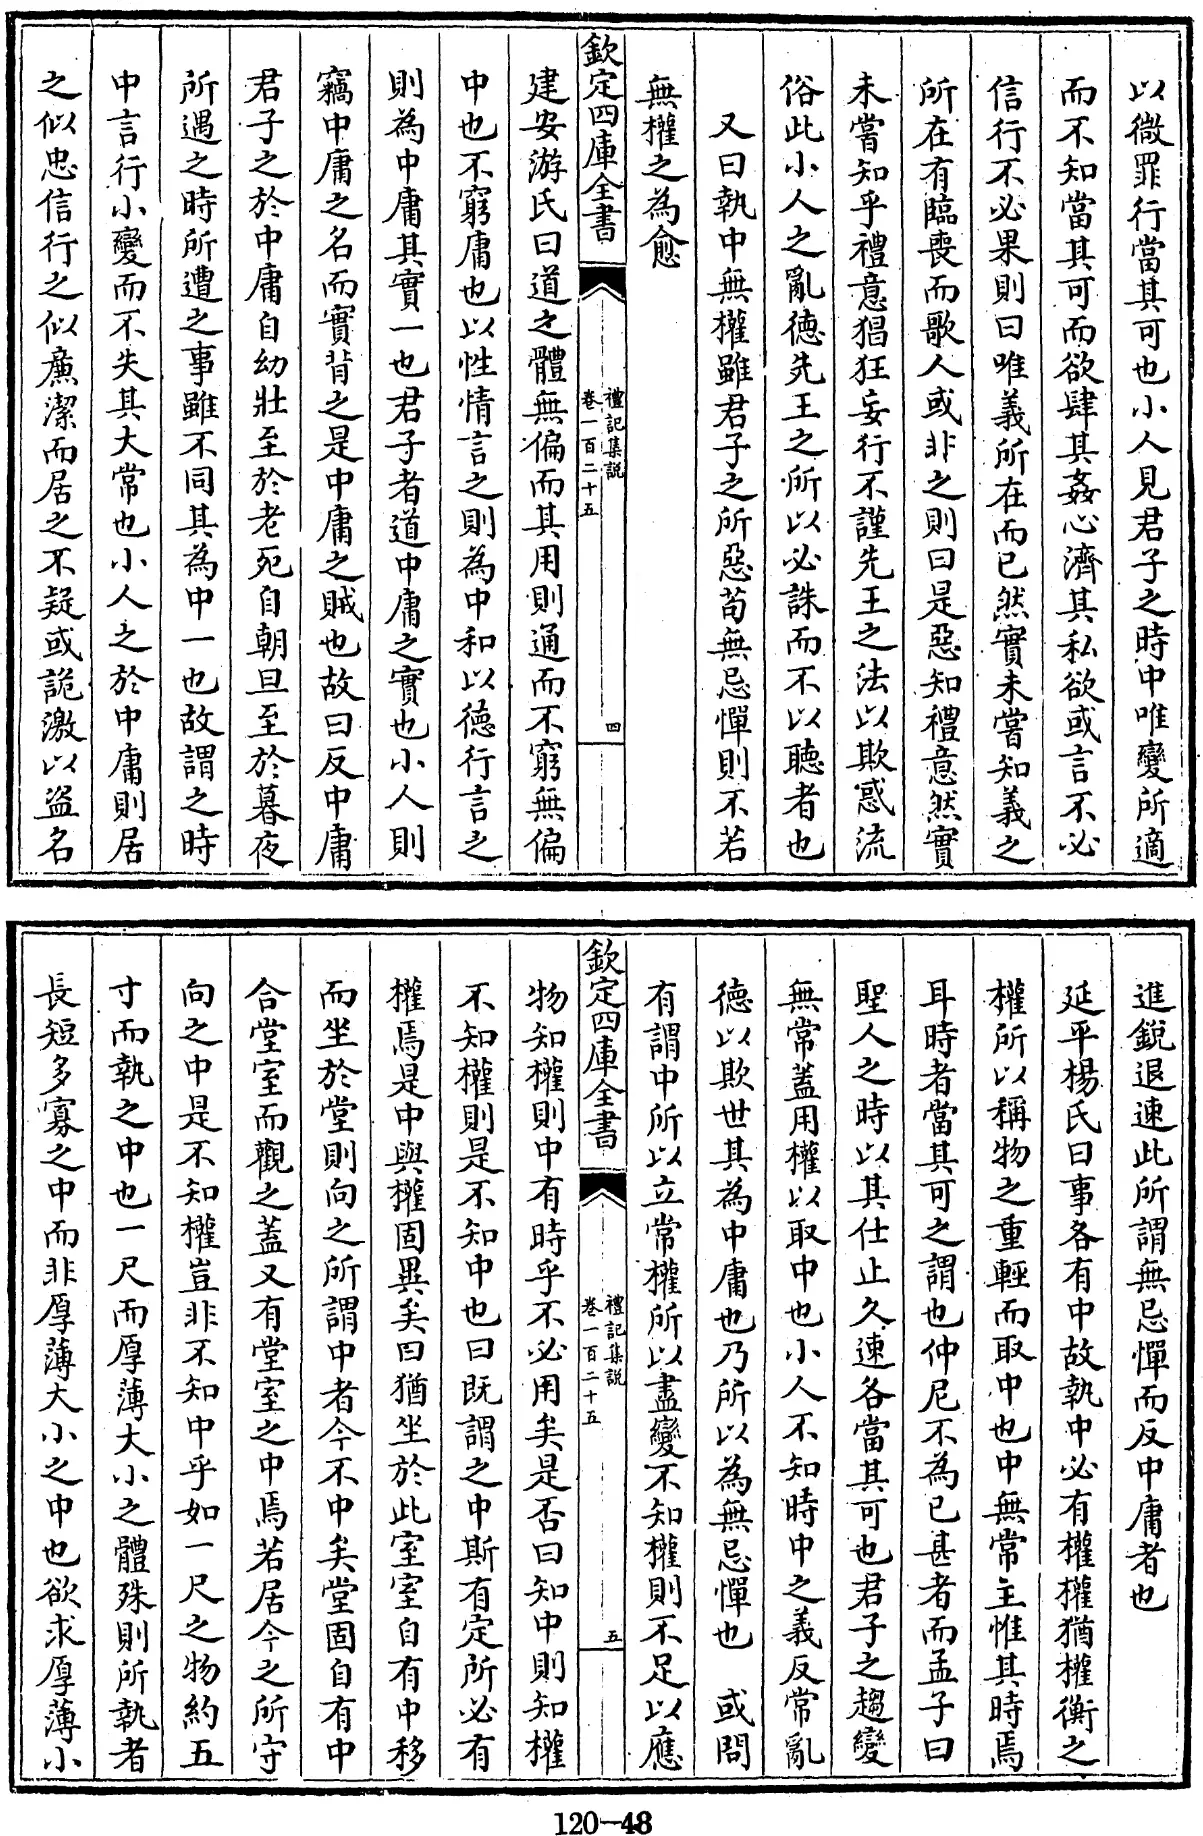 以微罪行當其可也小人見君子之時中唯變所適
而不知當其可而欲肆其姦心濟其私欲或言不必
信行不必果則曰唯義所在而已然實未嘗知義之
所在有臨喪而歌人或非之則曰是惡知禮意然實
未嘗知乎禮意猖狂妄行不謹先王之法以欺惑流
俗此小人之亂德先王之所以必誅而不以聽者也
又曰執中無權雖君子之所惡苟無忌憚則不若
無權之為愈
欽定四庫全書
禮記集說
卷一百二十五
四
建安游氏曰道之體無偏而其用則通而不窮無偏
中也不窮庸也以性情言之則為中和以德行言之
則為中庸其實一也君子者道中庸之實也小人則
竊中庸之名而實背之是中庸之賊也故曰反中庸
君子之於中庸自幼壯至於老死自朝旦至於暮夜
所遇之時所遭之事雖不同其為中一也故謂之時
中言行小變而不失其大常也小人之於中庸則居
之似忠信行之似廉潔而居之不疑或詭激以盜名
進銳退速此所謂無忌憚而反中庸者也
延平楊氏曰事各有中故執中必有權權猶權衡之
權所以稱物之重輕而取中也中無常主惟其時焉
耳時者當其可之謂也仲尼不為已甚者而孟子曰
聖人之時以其仕止久速各當其可也君子之趨變
無常蓋用權以取中也小人不知時中之義反常亂
德以欺世其為中庸也乃所以為無忌憚也 或問
有謂中所以立常權所以盡變不知權則不足以應
欽定四庫全書
禮記集說
卷一百二十五
五
物知權則中有時乎不必用矣是否曰知中則知權
不知權則是不知中也曰既謂之中斯有定所必有
權焉是中與權固異矣曰猶坐於此室室自有中移
而坐於堂則向之所謂中者今不中矣堂固自有中
合堂室而觀之蓋又有堂室之中焉若居今之所守
向之中是不知權豈非不知中乎如一尺之物約五
寸而執之中也一尺而厚薄大小之體殊則所執者
長短多寡之中而非厚薄大小之中也欲求厚薄小
120-48